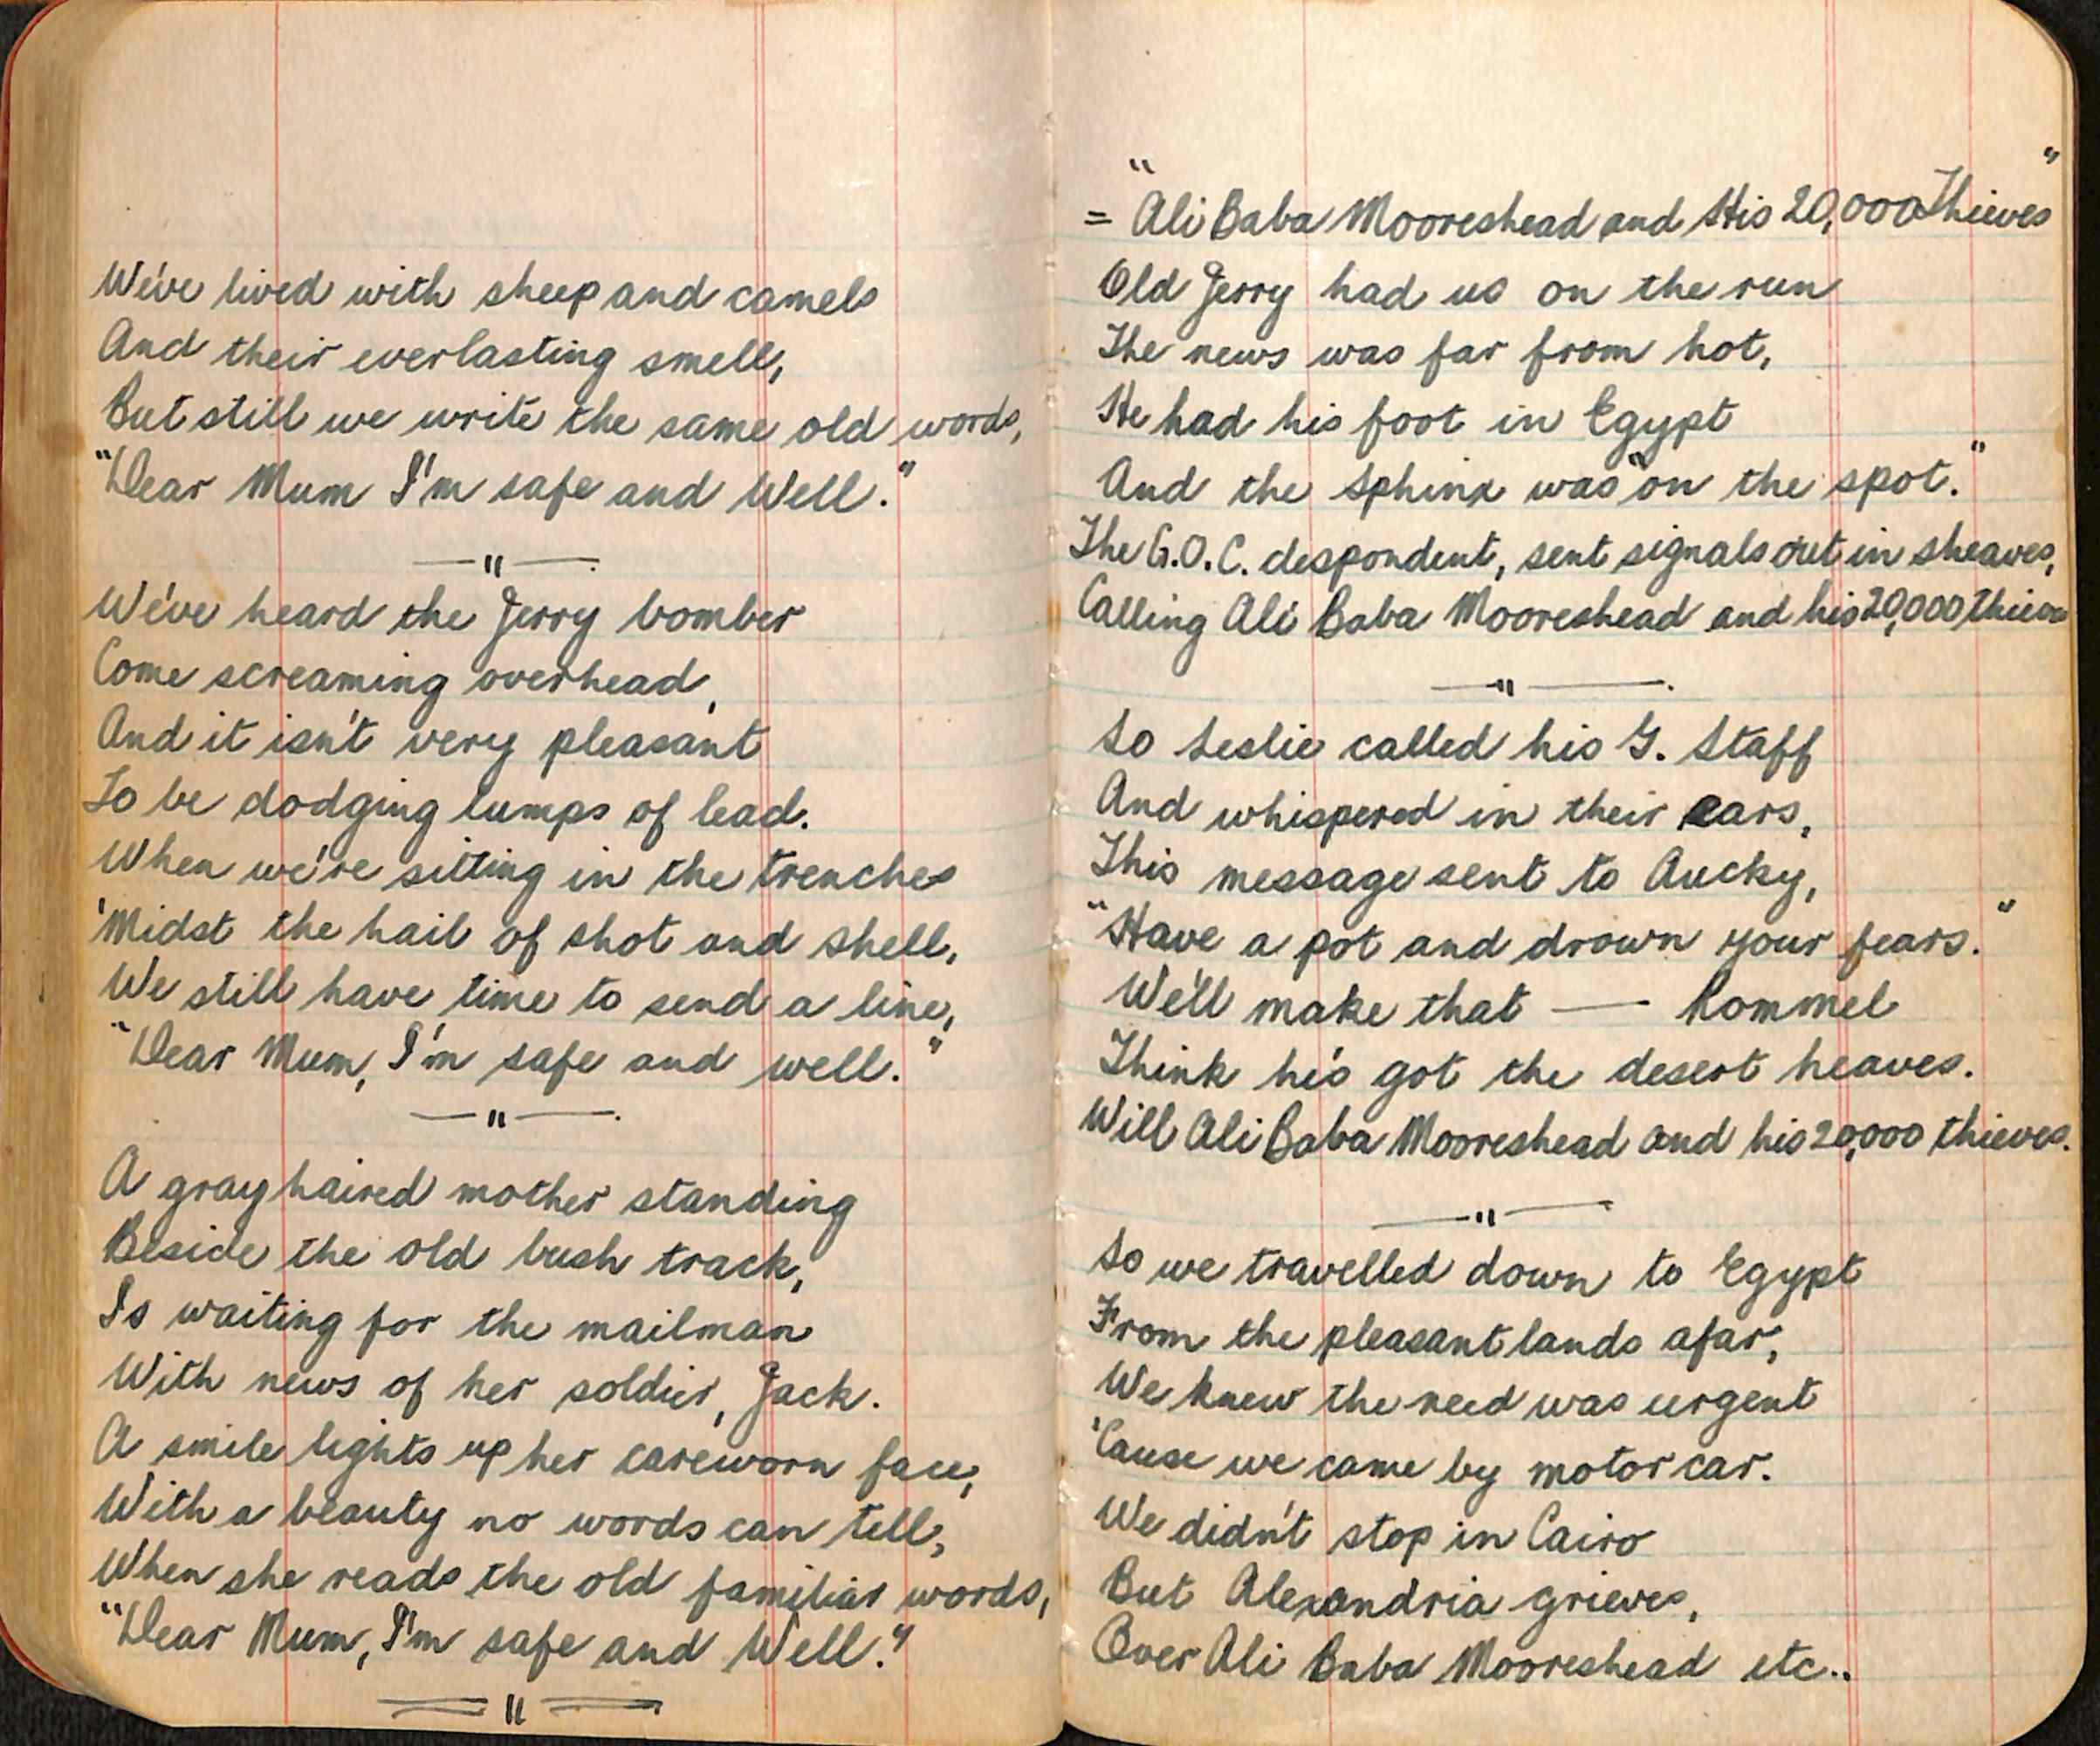 We've lived with sheep and camels
And their everlasting smell,
But still we write the same old words,
"Dear Mum I'm safe and Well."
— " —
We've heard the Jerry bomber
Come screaming overhead,
And it isn't very pleasant
To be dodging lumps of lead.
When we're sitting in the trenches
'Midst the hail of shot and shell,
We still have time to send a line,
"Dear Mum, I'm safe and well."
— " —
A gray haired mother standing
Beside the old bush track,
Is waiting for the mailman
With news of her soldier, Jack.
A smile lights up her careworn face,
With a beauty no words can tell,
When she reads the old familiar words,
"Dear Mum, I'm safe and Well."
= " =
= "Ali Baba Mooreshead and His 20,000 Thieves"
Old Jerry had us on the run
The news was far from hot,
He had his foot in Egypt
And the Sphinx was "on the spot."
The G.O.C. despondent, sent signals out in sheaves,
Calling Ali Baba Mooreshead and his 20,000 thieves
— " —
So Leslie called his G. Staff
And whispered in their ears,
This message sent to Aucky,
"Have a pot and drown your fears."
We'll make that — Rommel
Think he's got the desert heaves.
Will Ali Baba Mooreshead and his 20,000 thieves.
— " —
So we travelled down to Egypt
From the pleasant lands afar,
We knew the need was urgent
'Cause we came by motor car.
We didn't stop in Cairo
But Alexandria grieves,
Over Ali Baba Mooreshead etc..